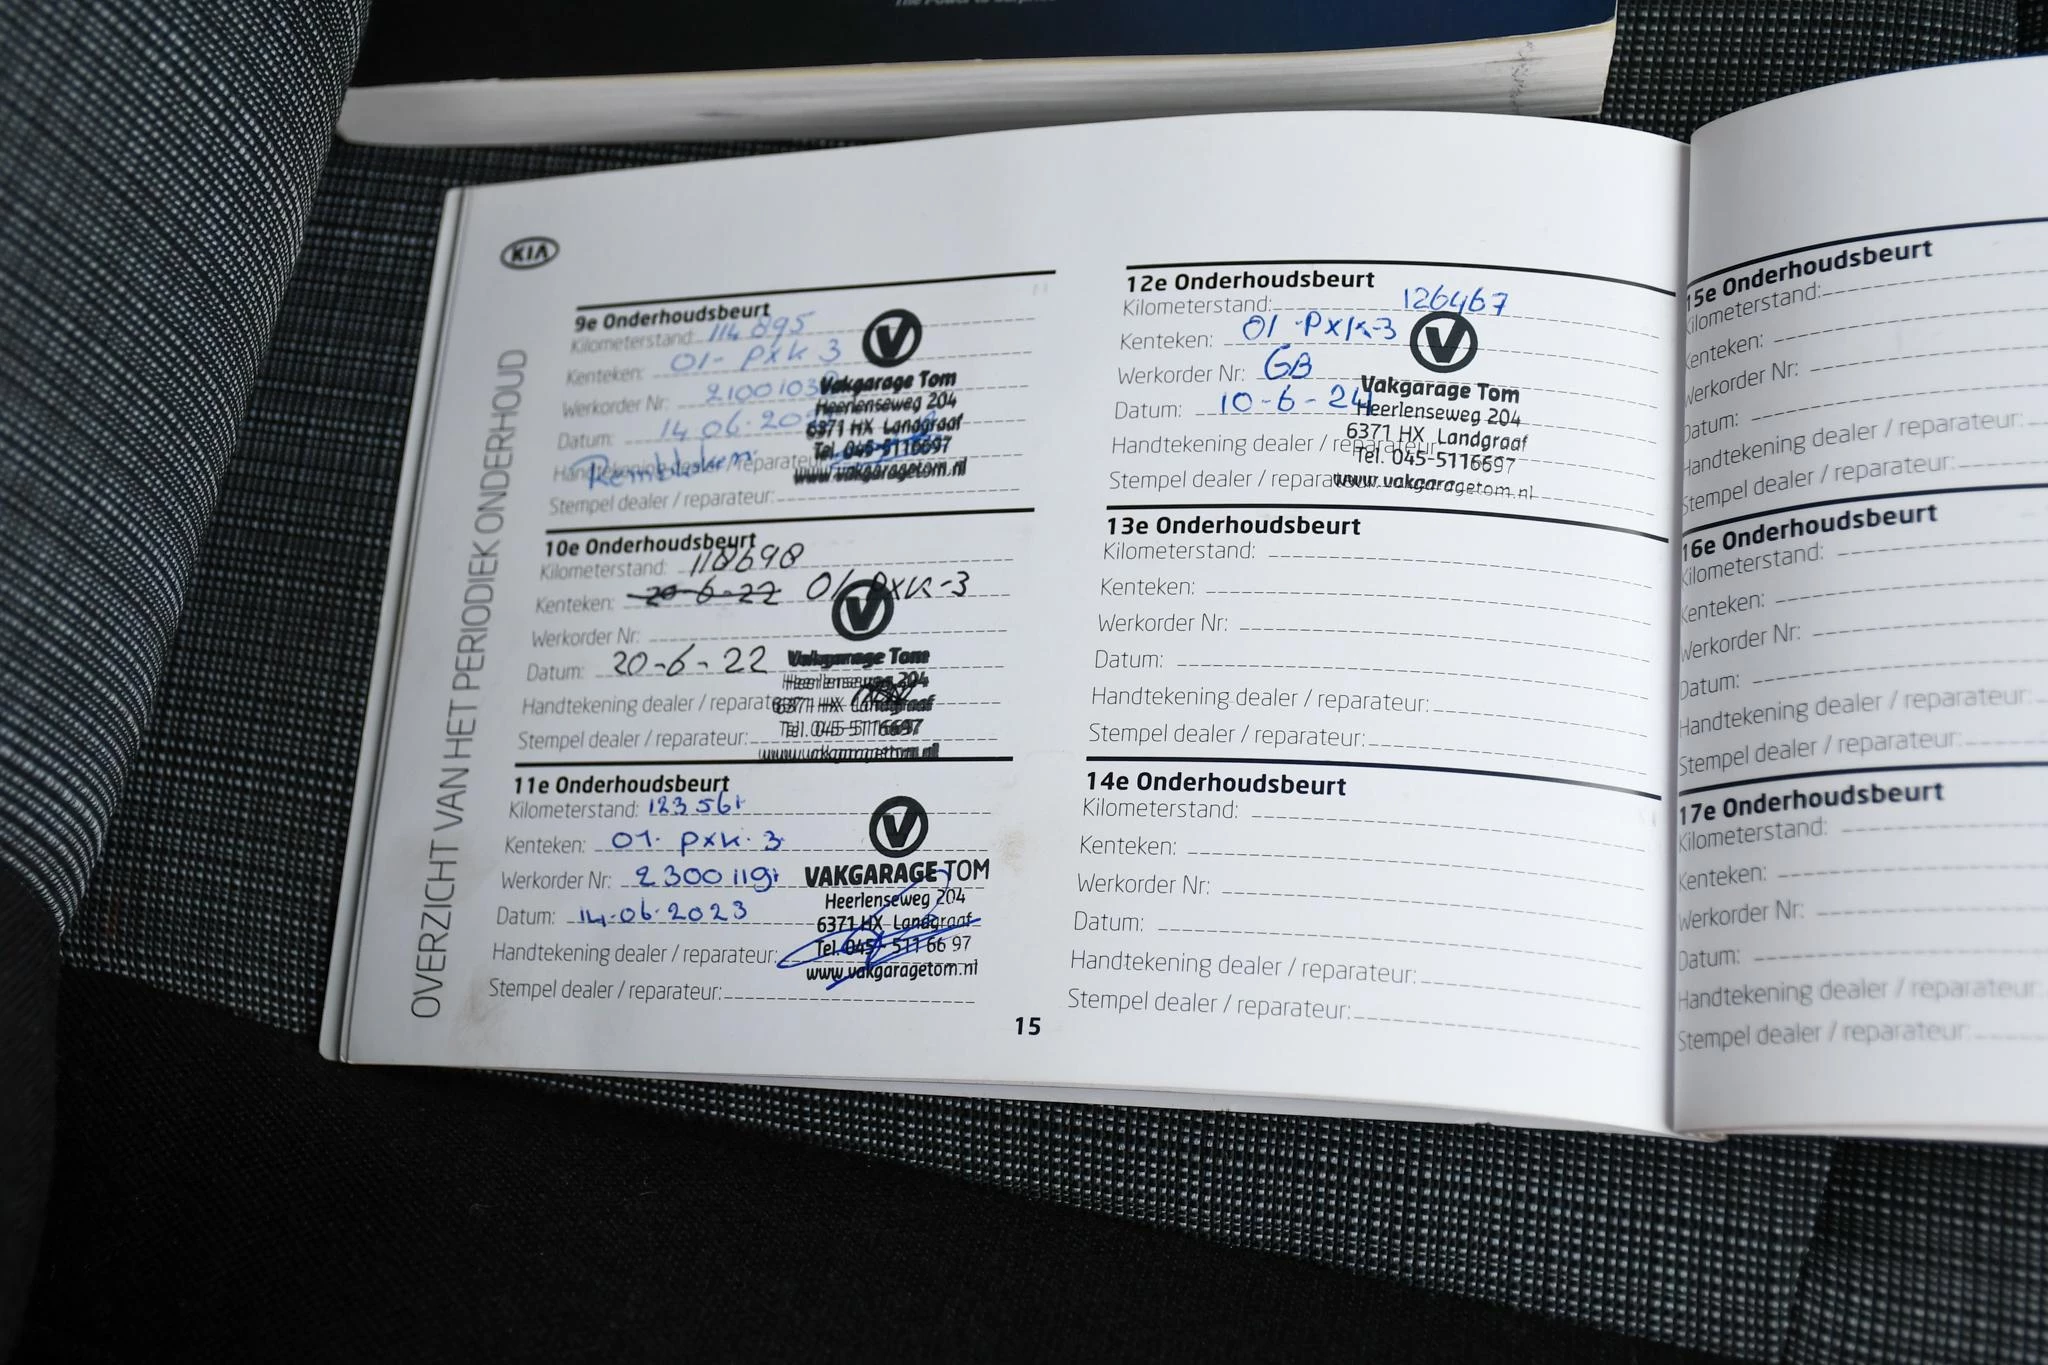 KIA
OVERZICHT VAN HET PERIODIEK ONDERHOUD
9e Onderhoudsbeurt
Kilometerstand: 114895
Kenteken: 01-PXK 3
Werkorder Nr: 2100103
Datum: 14 06.20
Handtekening dealer / reparateur:
Remblokken
Stempel dealer / reparateur:
Vakgarage Tom
Heerlenseweg 204
6371 HX Landgraaf
Tel. 045-5116697
www.vakgaragetom.nl
10e Onderhoudsbeurt
Kilometerstand: 118698
Kenteken: 20-6-22 01-PXK-3
Werkorder Nr:
Datum: 20-6-22
Handtekening dealer / reparateur:
Stempel dealer / reparateur:
Vakgarage Tom
Heerlenseweg 204
6371 HX Landgraaf
Tel. 045-5116697
www.vakgaragetom.nl
11e Onderhoudsbeurt
Kilometerstand: 123561
Kenteken: 01-PXK-3
Werkorder Nr: 2300119
Datum: 14.06.2023
Handtekening dealer / reparateur:
Stempel dealer / reparateur:
VAKGARAGE TOM
Heerlenseweg 204
6371 HX Landgraaf
Tel. 045 - 511 66 97
www.vakgaragetom.nl
15
12e Onderhoudsbeurt
Kilometerstand: 126467
Kenteken: 01-PXK-3
Werkorder Nr: GB
Datum: 10-6-24
Handtekening dealer / reparateur:
Stempel dealer / reparateur:
Vakgarage Tom
Heerlenseweg 204
6371 HX Landgraaf
Tel. 045-5116697
www.vakgaragetom.nl
13e Onderhoudsbeurt
Kilometerstand:
Kenteken:
Werkorder Nr:
Datum:
Handtekening dealer / reparateur:
Stempel dealer / reparateur:
14e Onderhoudsbeurt
Kilometerstand:
Kenteken:
Werkorder Nr:
Datum:
Handtekening dealer / reparateur:
Stempel dealer / reparateur:
15e Onderhoudsbeurt
Kilometerstand:
Kenteken:
Werkorder Nr:
Datum:
Handtekening dealer / reparateur:
Stempel dealer / reparateur:
16e Onderhoudsbeurt
Kilometerstand:
Kenteken:
Werkorder Nr:
Datum:
Handtekening dealer / reparateur:
Stempel dealer / reparateur:
17e Onderhoudsbeurt
Kilometerstand:
Kenteken:
Werkorder Nr:
Datum:
Handtekening dealer / reparateur:
Stempel dealer / reparateur: